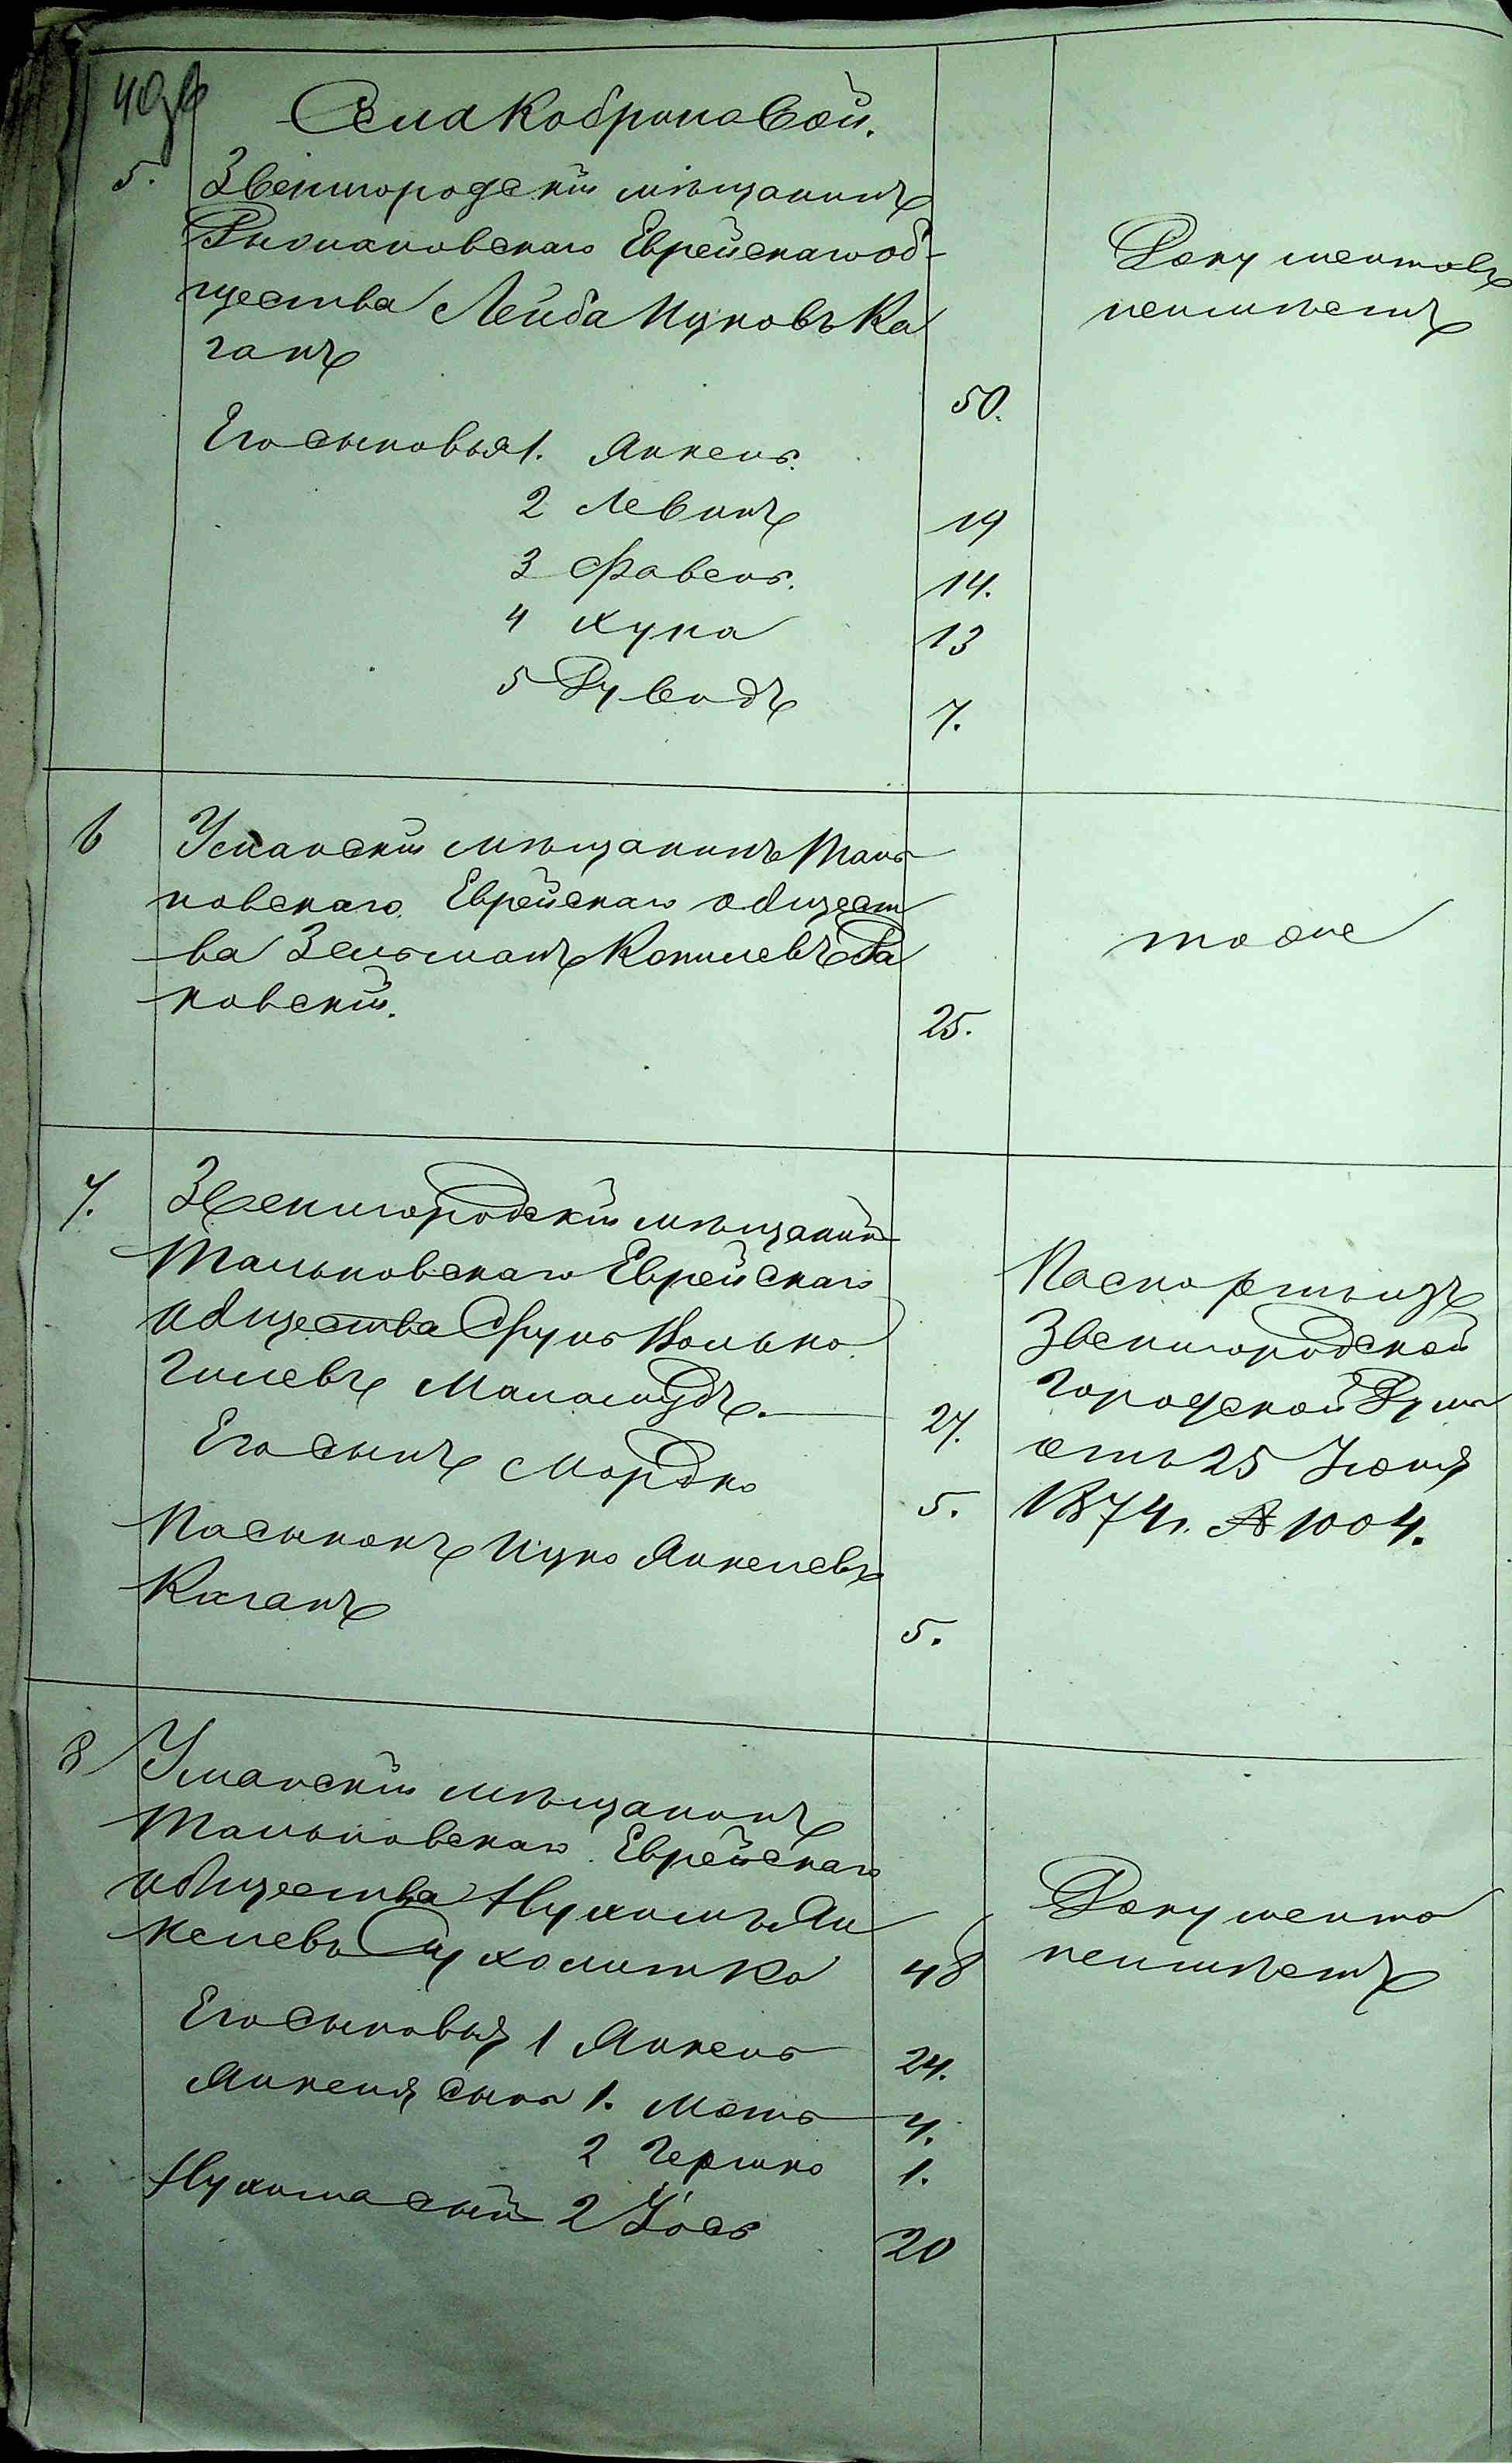 Села Кобриновой.
5. Звенигородскій мѣщанинъ
Рыжановскаго Еврейскаго об-
щества Лейба Ицковъ Ка
ганъ 50.
Документовъ
неимѣетъ
Его сыновья 1. Янкель.
2 Левинъ 19
3 Файвель. 14.
4 Хуна 13
5 Дувидъ 7.
6 Уманскій мѣщанинъ Таль
новскаго Еврейскаго общест
ва Зельманъ Копилевъ Ра
ковскій. 25.
тоже
7. Звенигородскій мѣщанинъ
Тальновскаго Еврейскаго
общества Сруль Волько
Гилевъ 27.
Его сынъ Мордко 5.
Пасынокъ Ицко Янкелевъ
Каганъ 5.
Паспортъ изъ
Звенигородской
Городской Думы
отъ 25 Іюня
1874 г. № 1004.
8 Уманскій мѣщанинъ
Тальновскаго Еврейскаго
общества Нухимъ Ян
келевъ Сухолитко 48
Документа
неимѣетъ
Его сыновья 1 Янкель 24.
Янкеля сына 1. Моть 4.
2 Гершко 1.
Нухима сынъ 2 Іось 20